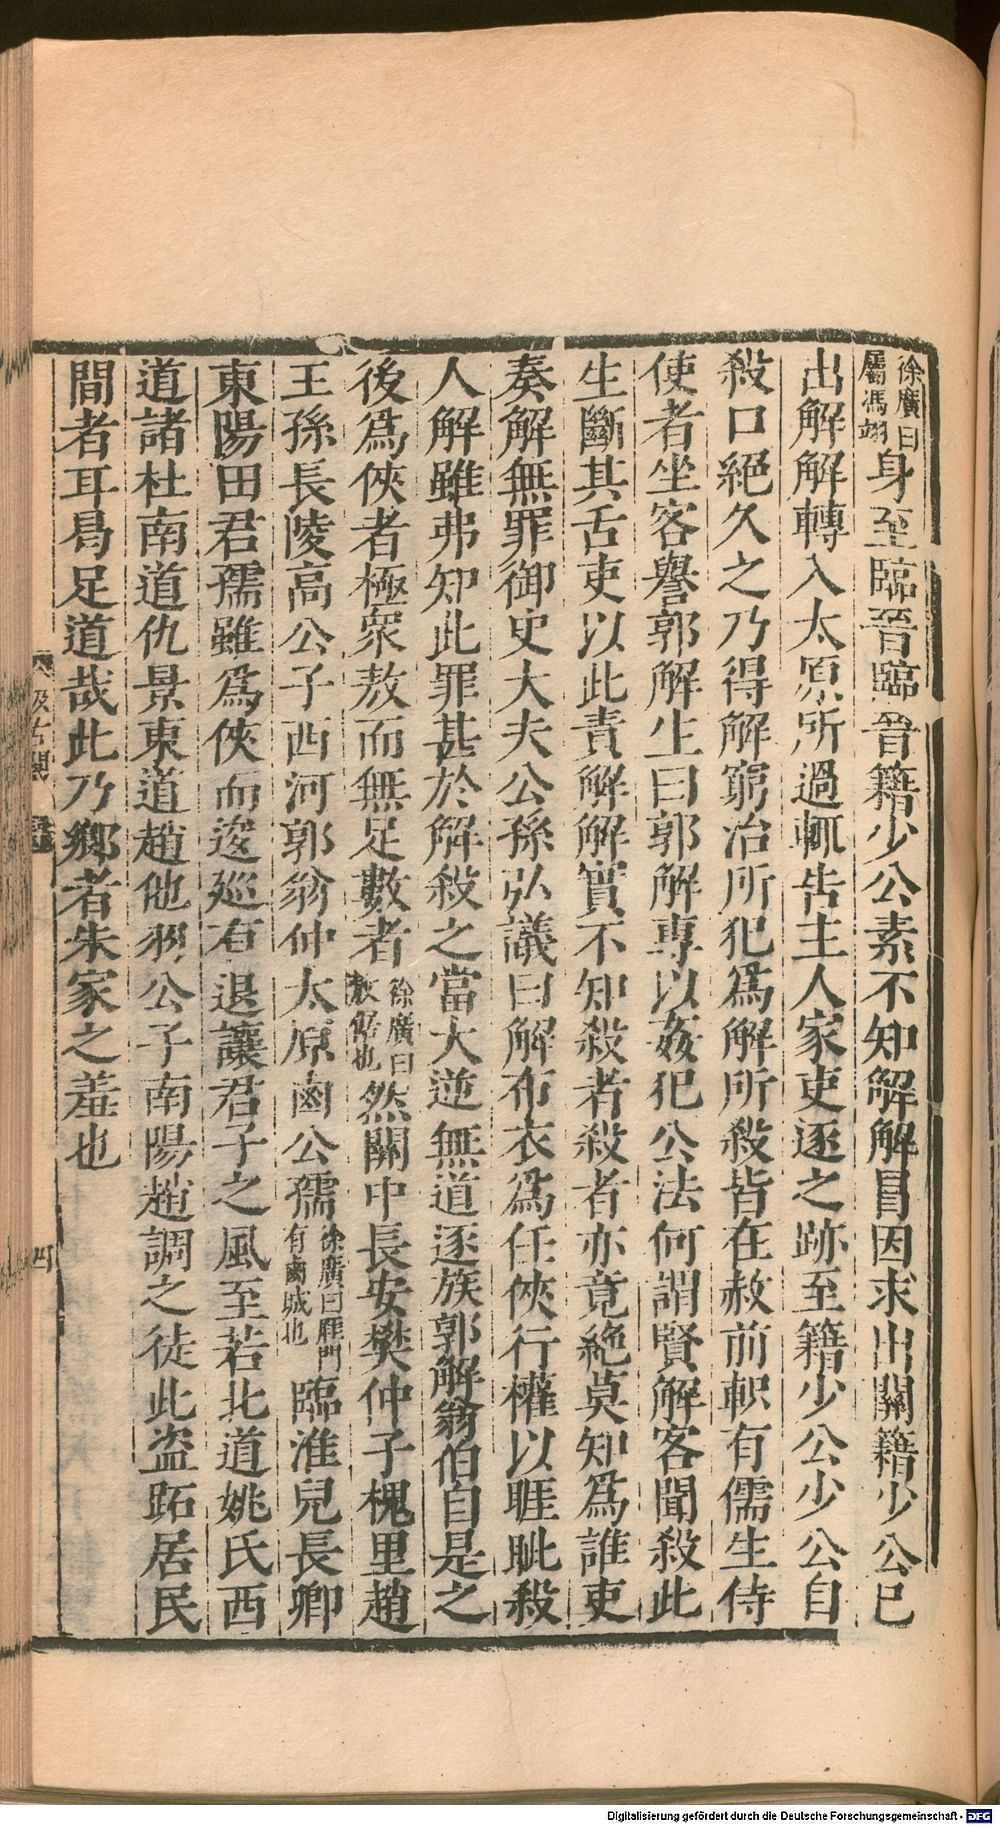 徐廣曰屬馮翊身至臨晉臨晉籍少公素不知解解冒因求出關籍少公已
出解解轉入太原所過輒告主人家吏逐之跡至籍少公少公自
殺口絕久之乃得解窮治所犯爲解所殺皆在赦前軹有儒生侍
使者坐客譽郭解生曰郭解專以姦犯公法何謂賢解客聞殺此
生斷其舌吏以此責解解實不知殺者殺者亦竟絶莫知爲誰吏
奏解無罪御史大夫公孫弘議曰解布衣爲任俠行權以睚眦殺
人解雖弗知此罪甚於解殺之當大逆無道逐族郭解翁伯自是之
後爲俠者極衆敖而無足數者徐廣曰敖倨也然關中長安樊仲子槐里趙
王孫長陵高公子西河郭翁仲太原鹵公孺徐廣曰雁門有鹵城也臨淮兒長卿
東陽田君孺雖爲俠而逡廵有退讓君子之風至若北道姚氏西
道諸杜南道仇景東道趙他羽公子南陽趙調之徒此盜跖居民
間者耳曷足道哉此乃鄉者朱家之羞也
四
Digitalisierung gefördert durch die Deutsche Forschungsgemeinschaft - DFG